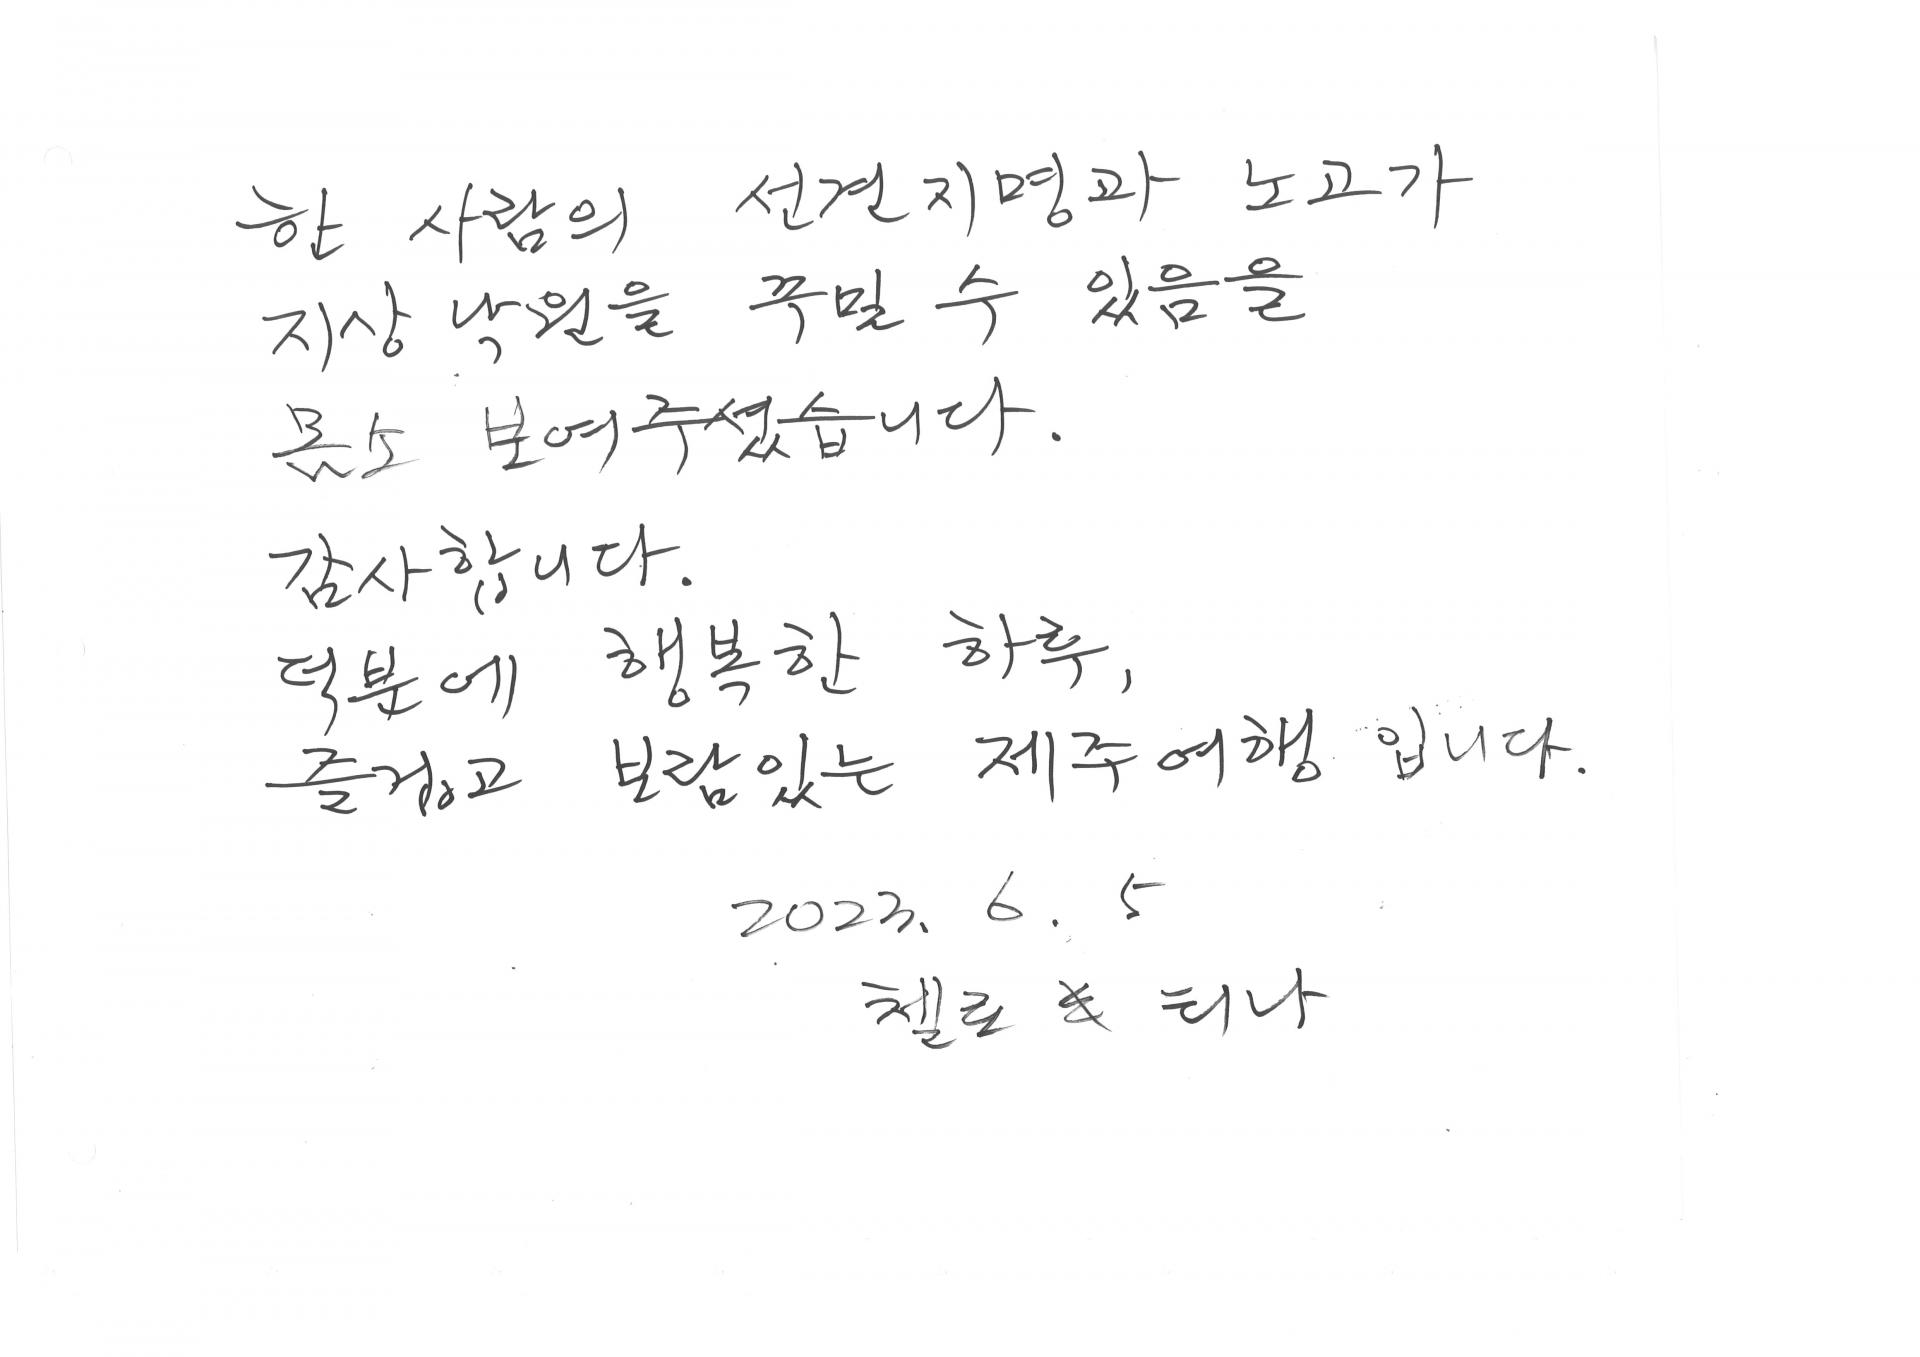 한 사람의 선견지명과 노고가
지상낙원을 꾸밀 수 있음을
몸소 보여주셨습니다.
감사합니다.
덕분에 행복한 하루,
즐겁고 보람있는 제주여행 입니다.
2023. 6. 5
첼로 & 티나